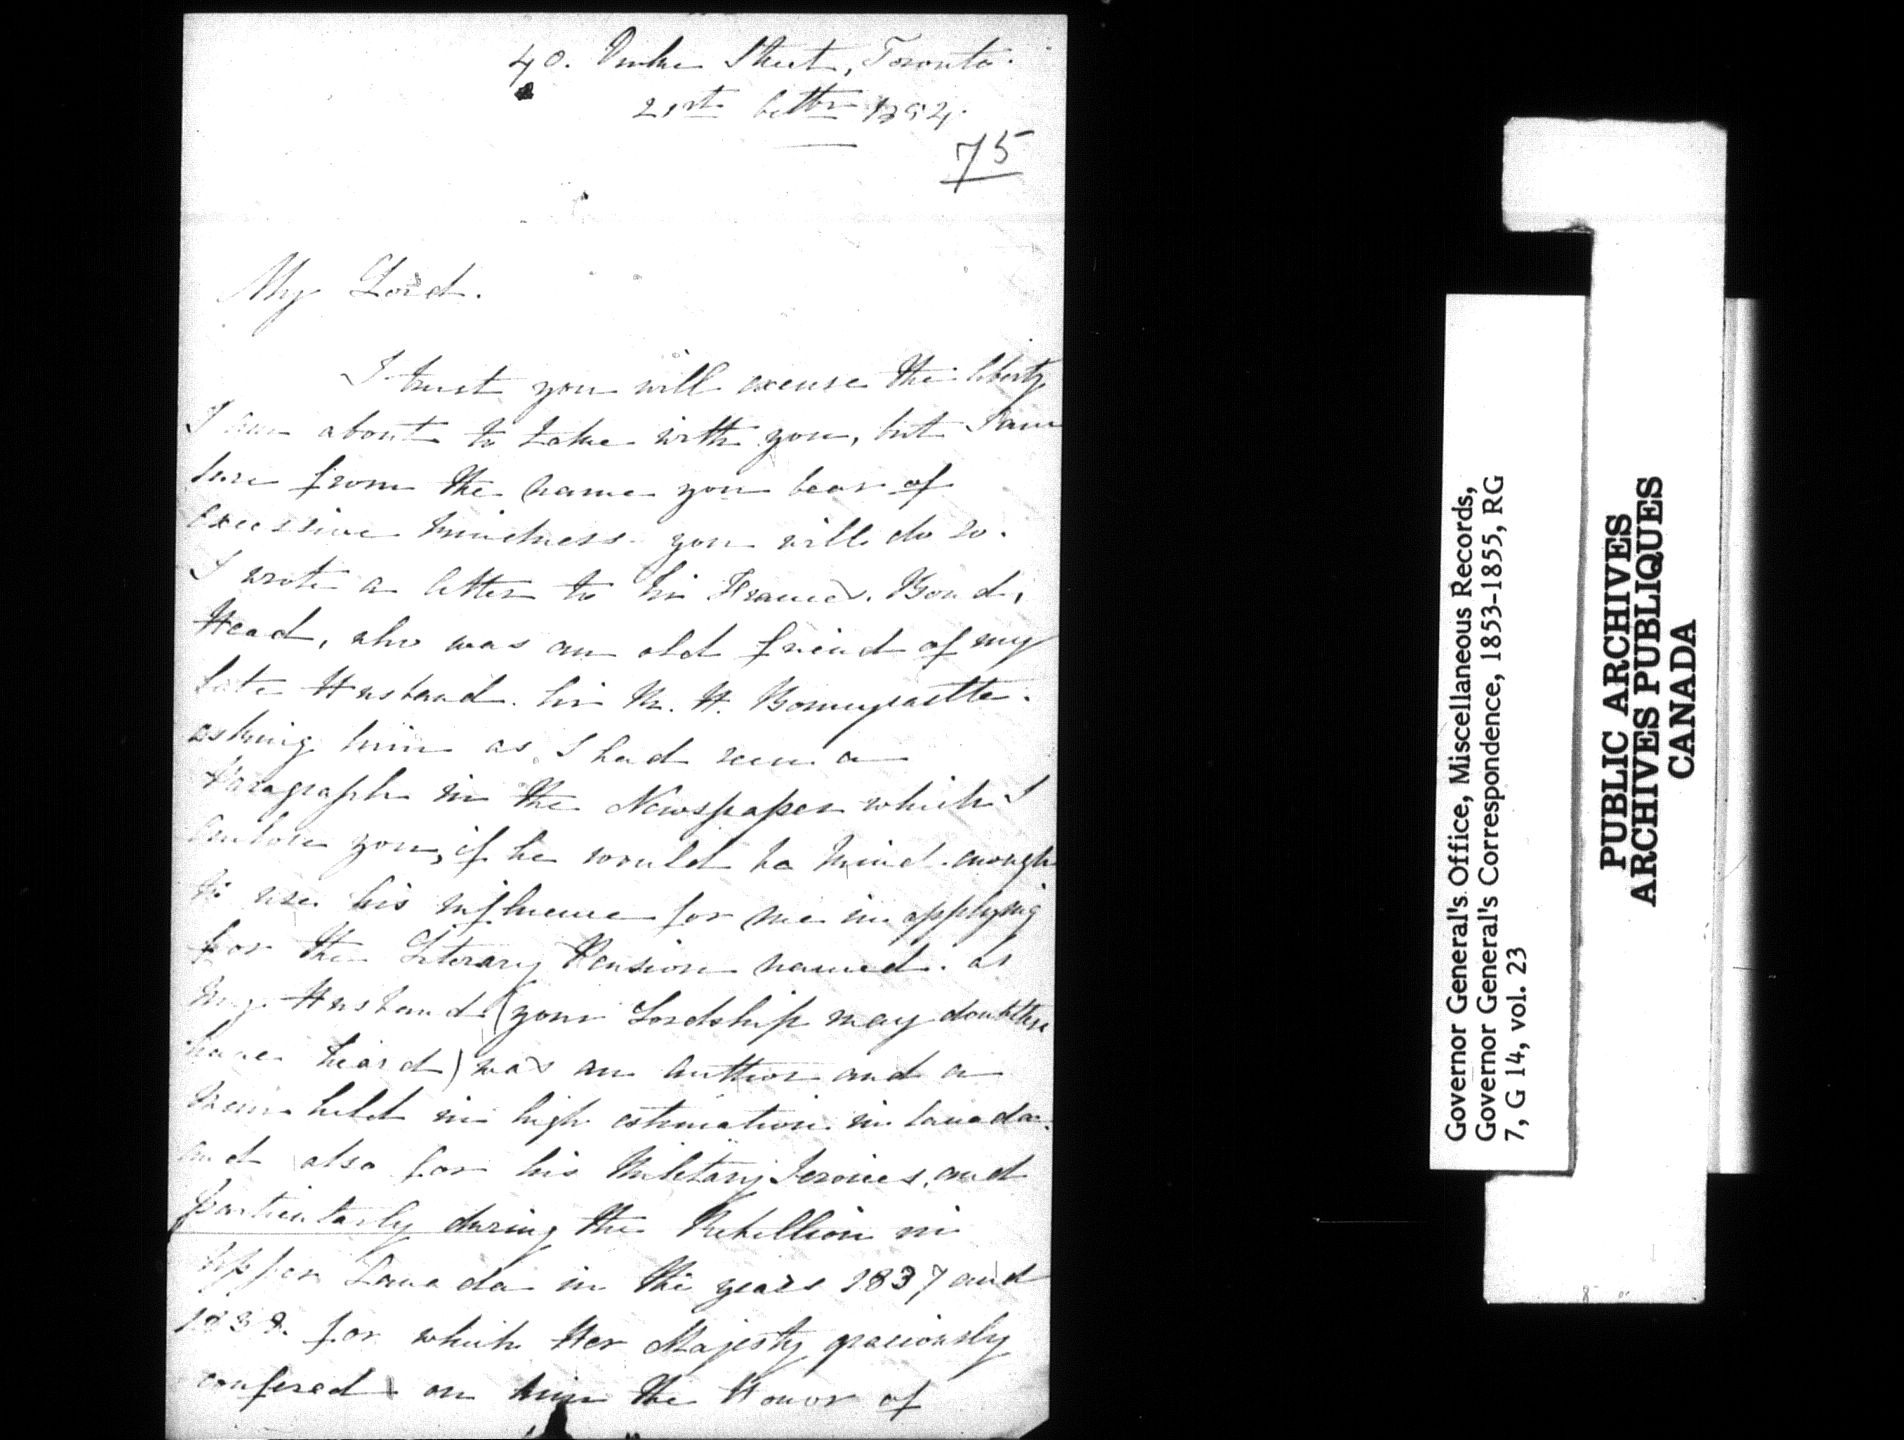 40. Duke Street, Toronto.
21st 1854.
75
My Lord.
I trust you will excuse the liberty
I am about to take with you, but I am
sure from the name you bear of
excessive kindness you will do so.
I wrote a letter to Sir Francis. Bond,
Head, who was an old friend of my
late Husband. Sir R. H. Bonnycastle.
asking him as I had seen a
Paragraph in the Newspaper which I
enclose you, if he would be kind enough
to use his influence for me in applying
for the Literary Pension named. as
my Husband (your Lordship may doubtless
have heard) was an author and a
man held in high estimation in Canada.
and also for his Military Services, and
particularly during the Rebellion in
Upper Canada in the years 1837 and
1838. for which Her Majesty graciously
confered on him the Honor of
Governor General's Office, Miscellaneous Records,
Governor General's Correspondence, 1853-1855, RG
7, G 14, vol. 23
PUBLIC ARCHIVES
ARCHIVES PUBLIQUES
CANADA